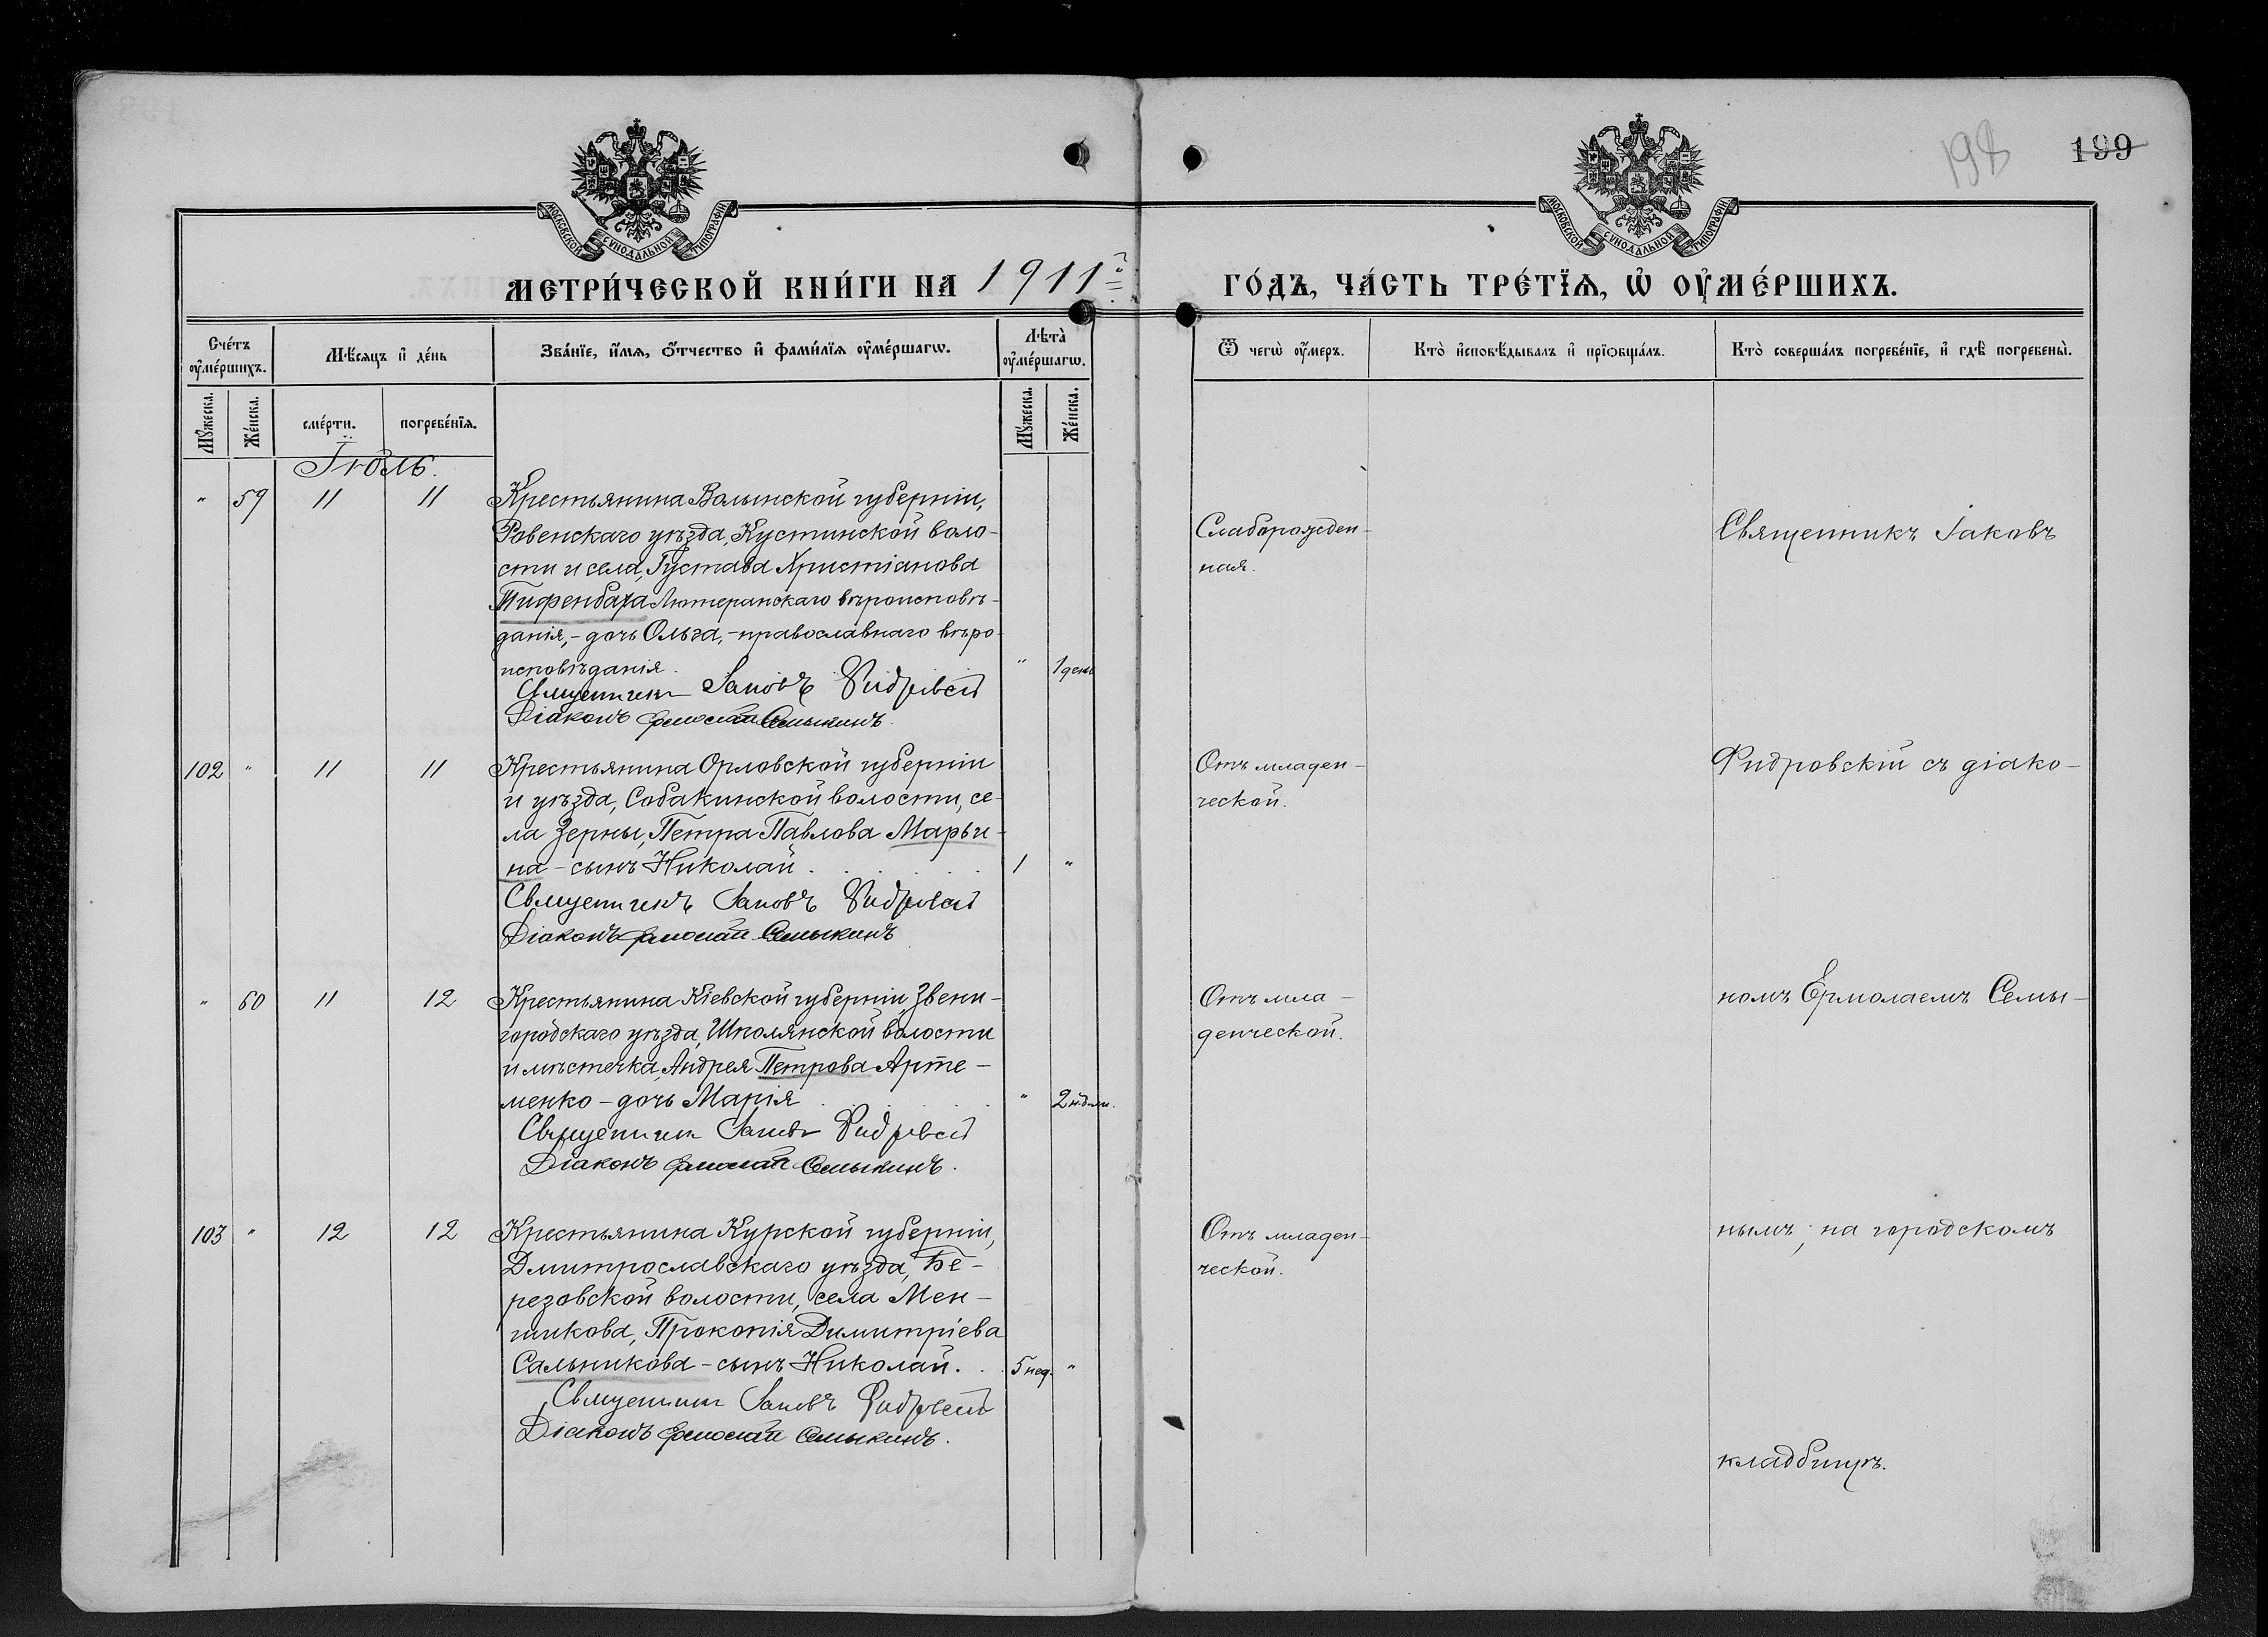 198
199
МОСКОВСКОЙ СѴНОДАЛЬНОЙ ТИПОГРАФІИ
МОСКОВСКОЙ СѴНОДАЛЬНОЙ ТИПОГРАФІИ
МЕТРИ́ЧЕСКОЙ КНИ́ГИ НА 1911й
ГО́ДЪ, ЧА́СТЬ ТРЕ́ТЇѦ, Ѡ҆ ОУ҆МЕ́РШИХЪ.
Сче́тъ оу҆ме́ршихъ.
Мѣ́сѧцъ и҆ де́нь
Зва́нїе, и҆́мѧ, ѻ҆́тчество и҆ фами́лїѧ оу҆ме́ршагѡ.
Лѣта̀ оу҆ме́ршагѡ.
Ѿ чегѡ̀ оу҆́меръ.
Кто̀ и҆сповѣ́дывалъ и҆ прїѡбща́лъ.
Кто̀ соверша́лъ погребе́нїе, и҆ гдѣ̀ погребены̀.
Мꙋ́жеска.
Же́нска.
сме́рти.
погребе́нїѧ.
Мꙋ́жеска.
Же́нска.
Іюль.
" 59 11 11 Крестьянина Волынской губерніи,
Ровенскаго уѣзда, Кустинской воло-
сти и села, Густава Христіанова
Тифенбаха Лютеранскаго вѣроисповѣ-
данія, - дочь Ольга, - православнаго вѣро-
исповѣданія. " 1 день
Священникъ Іаковъ Фидровскій
Діаконъ Ермолай Семыкинъ.
Слаборожден-
ная.
Священникъ Іаковъ
102 " 11 11 Крестьянина Орловской губерніи
и уѣзда, Собакинской волости, се-
ла Зерны, Петра Павлова Марьи-
на - сынъ Николай . . . . 1 "
Священникъ Іаковъ Фидровскій
Діаконъ Ермолай Семыкинъ
Отъ младен-
ческой.
Фидровскій съ діако-
" 60 11 12 Крестьянина Кіевской губерніи, Звени-
городскаго уѣзда, Шполянской волости
и мѣстечка, Андрея Петрова Арте-
менко - дочь Марія . . . . " 2 нѣдѣли.
Священникъ Іаковъ Фидровскій
Діаконъ Ермолай Семыкинъ.
Отъ мла-
денческой.
номъ Ермолаемъ Семы-
103 " 12 12 Крестьянина Курской губерніи,
Дмитрославскаго уѣзда, Бе-
резовской волости, села Мен-
шикова, Прокопія Димитріева
Сальникова - сынъ Николай. . . 5 нед. "
Священникъ Іаковъ Фидровскій
Діаконъ Ермолай Семыкинъ.
Отъ младен-
ческой.
нымъ, на городскомъ
кладбищѣ.